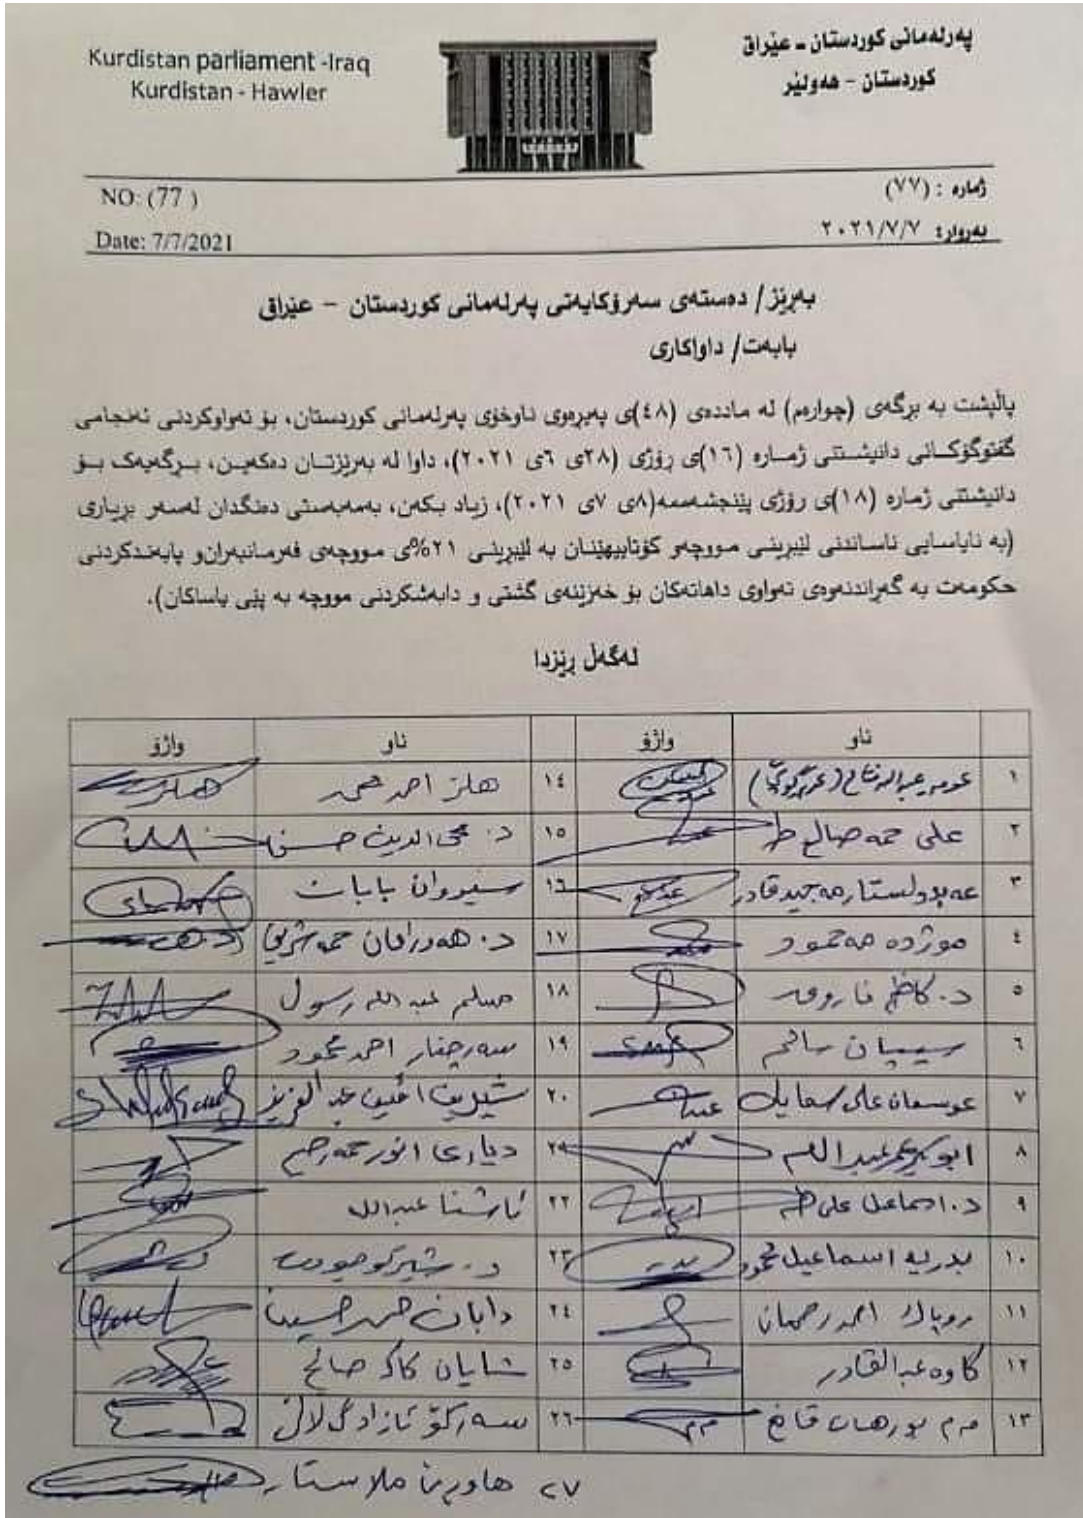 Kurdistan parliament -Iraq
Kurdistan - Hawler
پەرلەمانی کوردستان ـ عێراق
کوردستان - هەولێر
NO: (77 )
Date: 7/7/2021
ژمارە : (٧٧)
بەروار: ٢٠٢١/٧/٧
بەرێز/ دەستەی سەرۆکایەتی پەرلەمانی کوردستان - عێراق
بابەت/ داواکاری
پاڵپشت بە برگەی (چوارەم) لە ماددەی (٤٨)ی پەیرەوی ناوخۆی پەرلەمانی کوردستان، بۆ تەواوکردنی ئەنجامی
گفتوگۆکانی دانیشتنی ژمارە (١٦)ی رۆژی (٢٨ی ٦ی ٢٠٢١)، داوا لە بەرێزتان دەکەین، برگەیەک بۆ
دانیشتنی ژمارە (١٨)ی رۆژی پێنجشەممە(٨ی ٧ی ٢٠٢١)، زیاد بکەن، بەمەبەستی دەنگدان لەسەر بریاری
(بە نایاسایی ناساندنی لێبرینی مووچەو کۆتاییهێنان بە لێبرینی ٢١%ی مووچەی فەرمانبەران‌و پابەندکردنی
حکومەت بە گەراندنەوەی تەواوی داهاتەکان بۆ خەزێنەی گشتی و دابەشکردنی مووچە بە پێی یاساکان).
لەگەڵ رێزدا
ناو واژۆ ناو واژۆ
١ ١٤ هلز احمد حمه
٢ علی حمه صالح طه ١٥ د. محی الدین حسن
٣ عەبدولستار مەجید قادر ١٦ سیروان بابان
٤ موژدە مەحمود ١٧ د. هەورامان حمه شریف
٥ د. کاظم فاروق ١٨ مسلم عبدالله رسول
٦ سیپان سالم ١٩ سەرچنار احمد محمود
٧ عوسمان علی سمایل ٢٠ شیرین امین عبدالعزیز
٨ ابوبکر عمر عبدالله ٢١ دیاری انور حمەرحیم
٩ د. اسماعیل علی طه ٢٢ ئاشنا عبدالله
١٠ بدریه اسماعیل محمود ٢٣ د. شێرکۆ جودت
١١ روپاک احمد رحمان ٢٤ دابان محمد حسین
١٢ کاوە عبدالقادر ٢٥ شایان کاکە صالح
١٣ م.م بورهان قانع ٢٦ سەرکۆ ئازاد گەلالی
٢٧ هاوڕێ ملا ستار